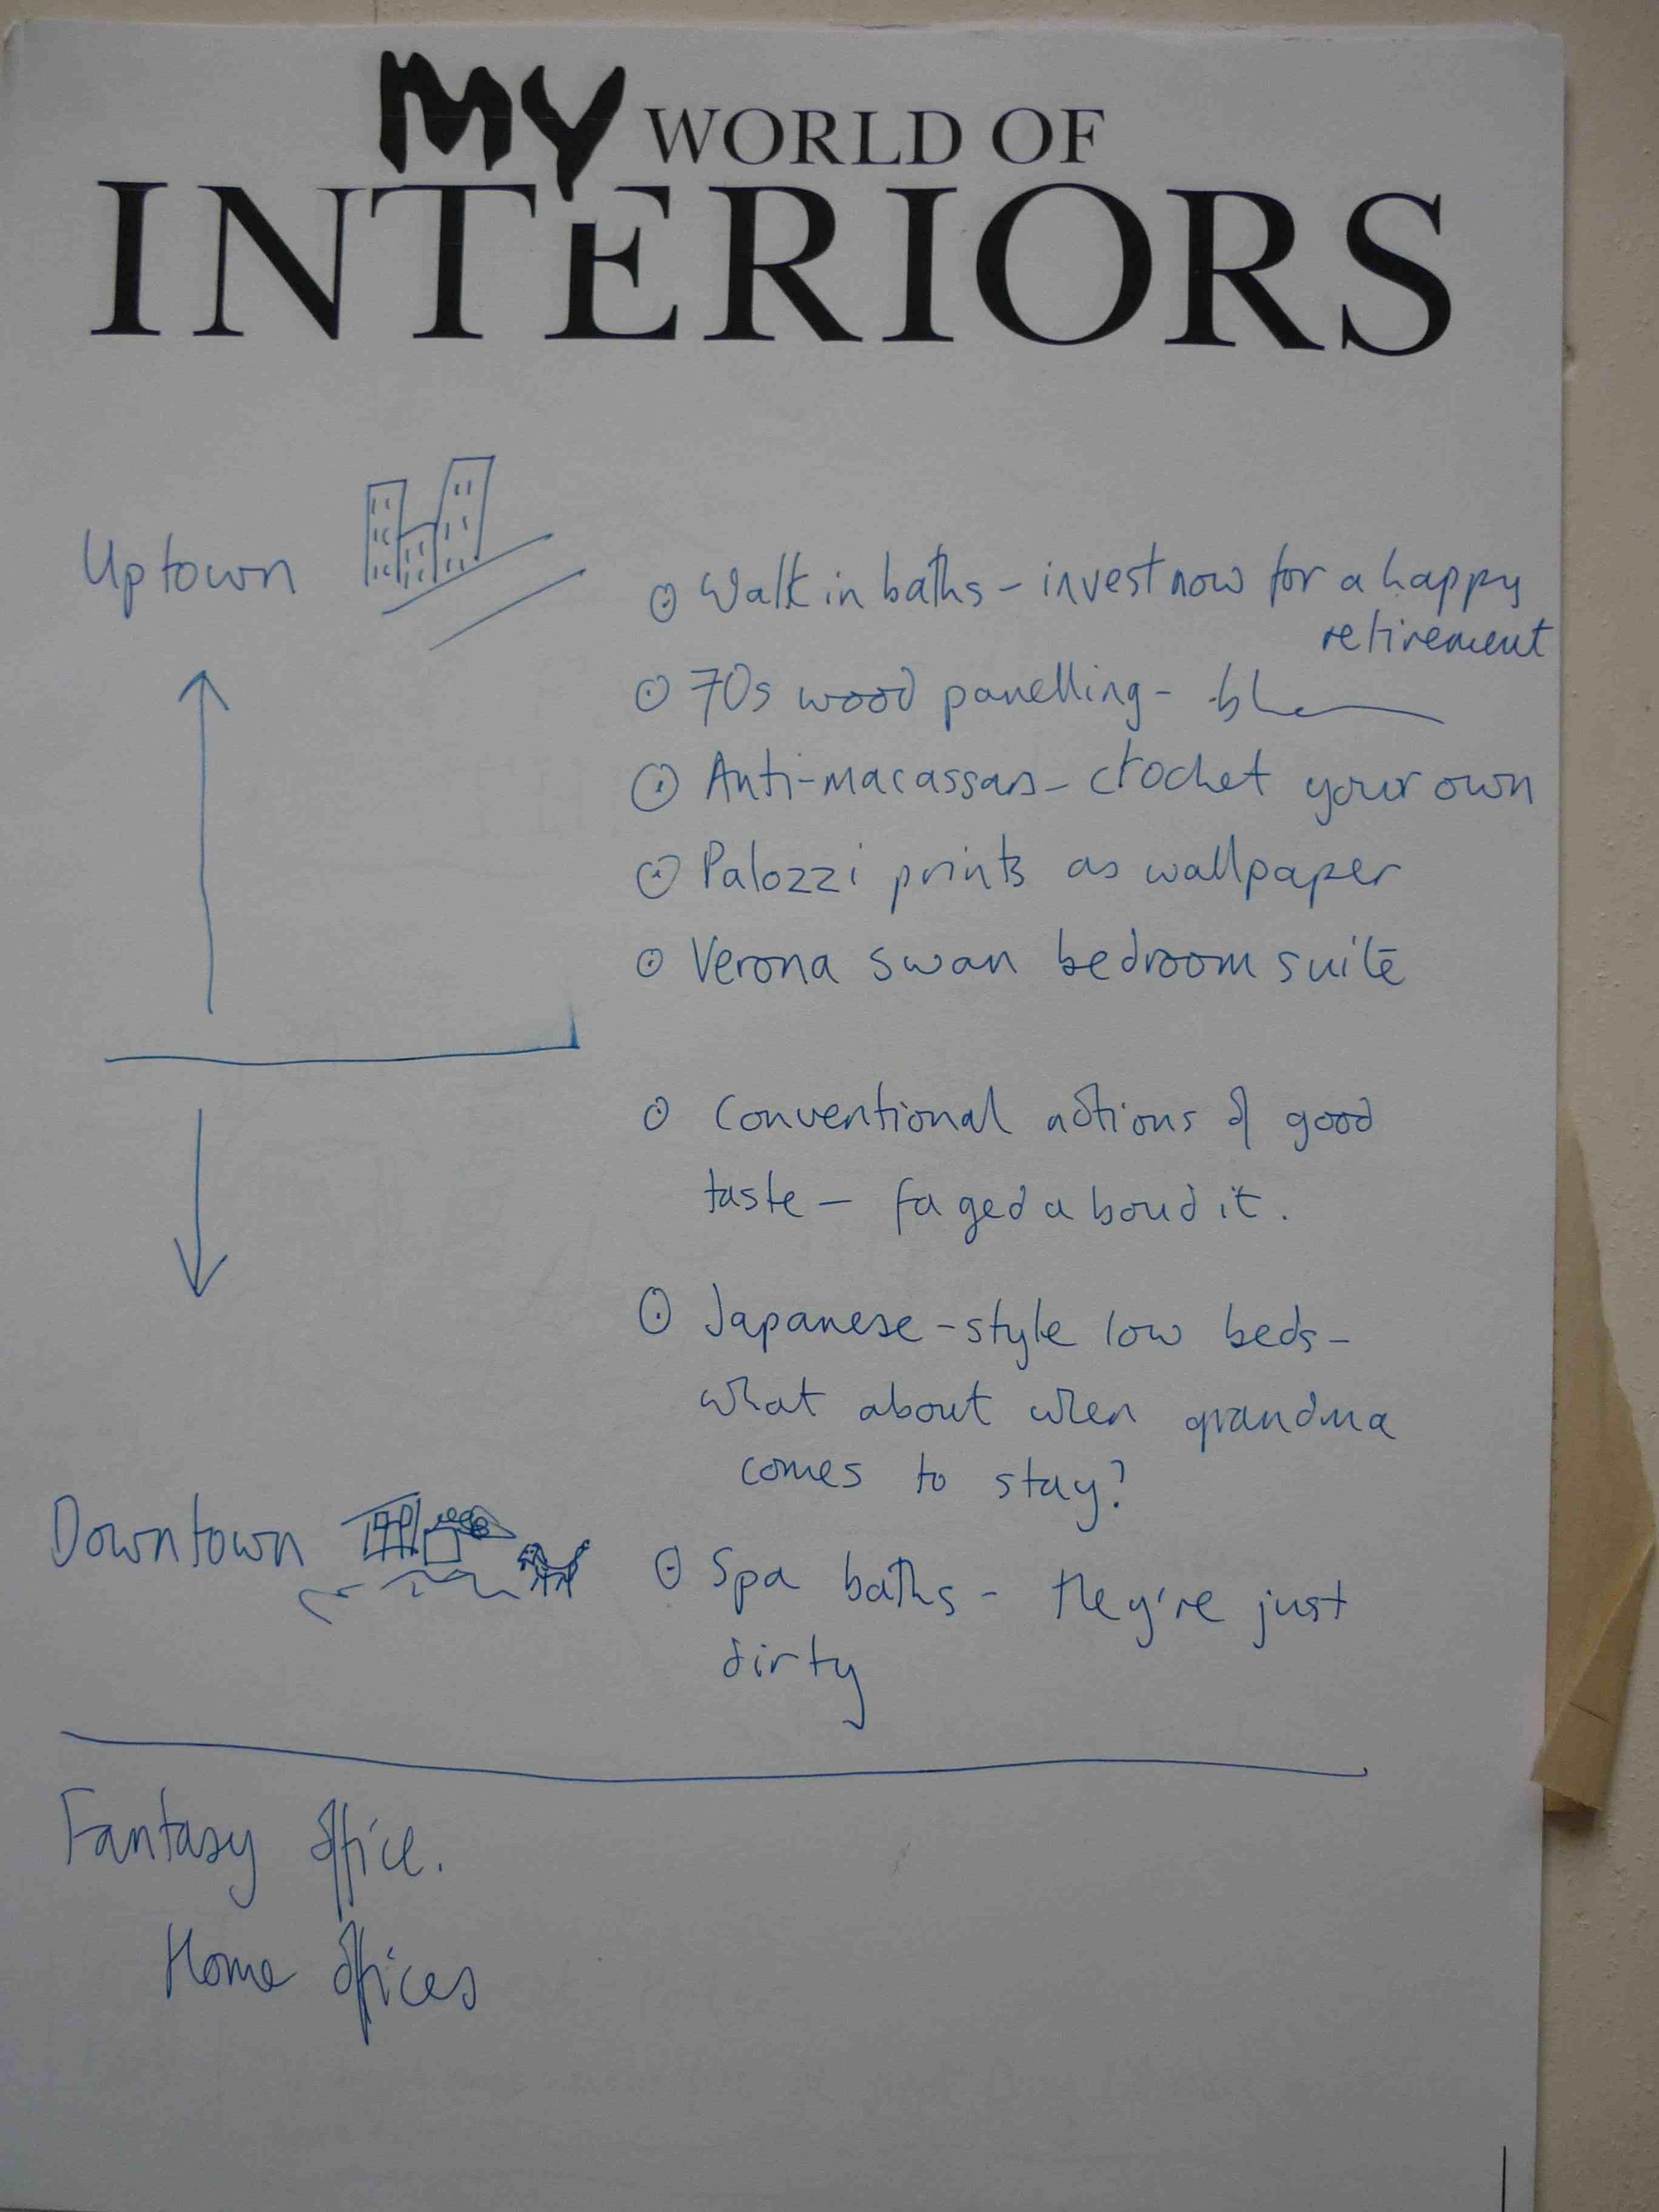 MY WORLD OF
INTERIORS
Uptown
Walk in baths – invest now for a happy
retirement
70s wood panelling –
Anti-macassars – crochet your own
Palozzi prints as wallpaper
Verona swan bedroom suite
Conventional notions of good
taste – fagedaboudit.
Japanese-style low beds –
what about when grandma
comes to stay?
Downtown
Spa baths – they're just
dirty
Fantasy office.
Home offices